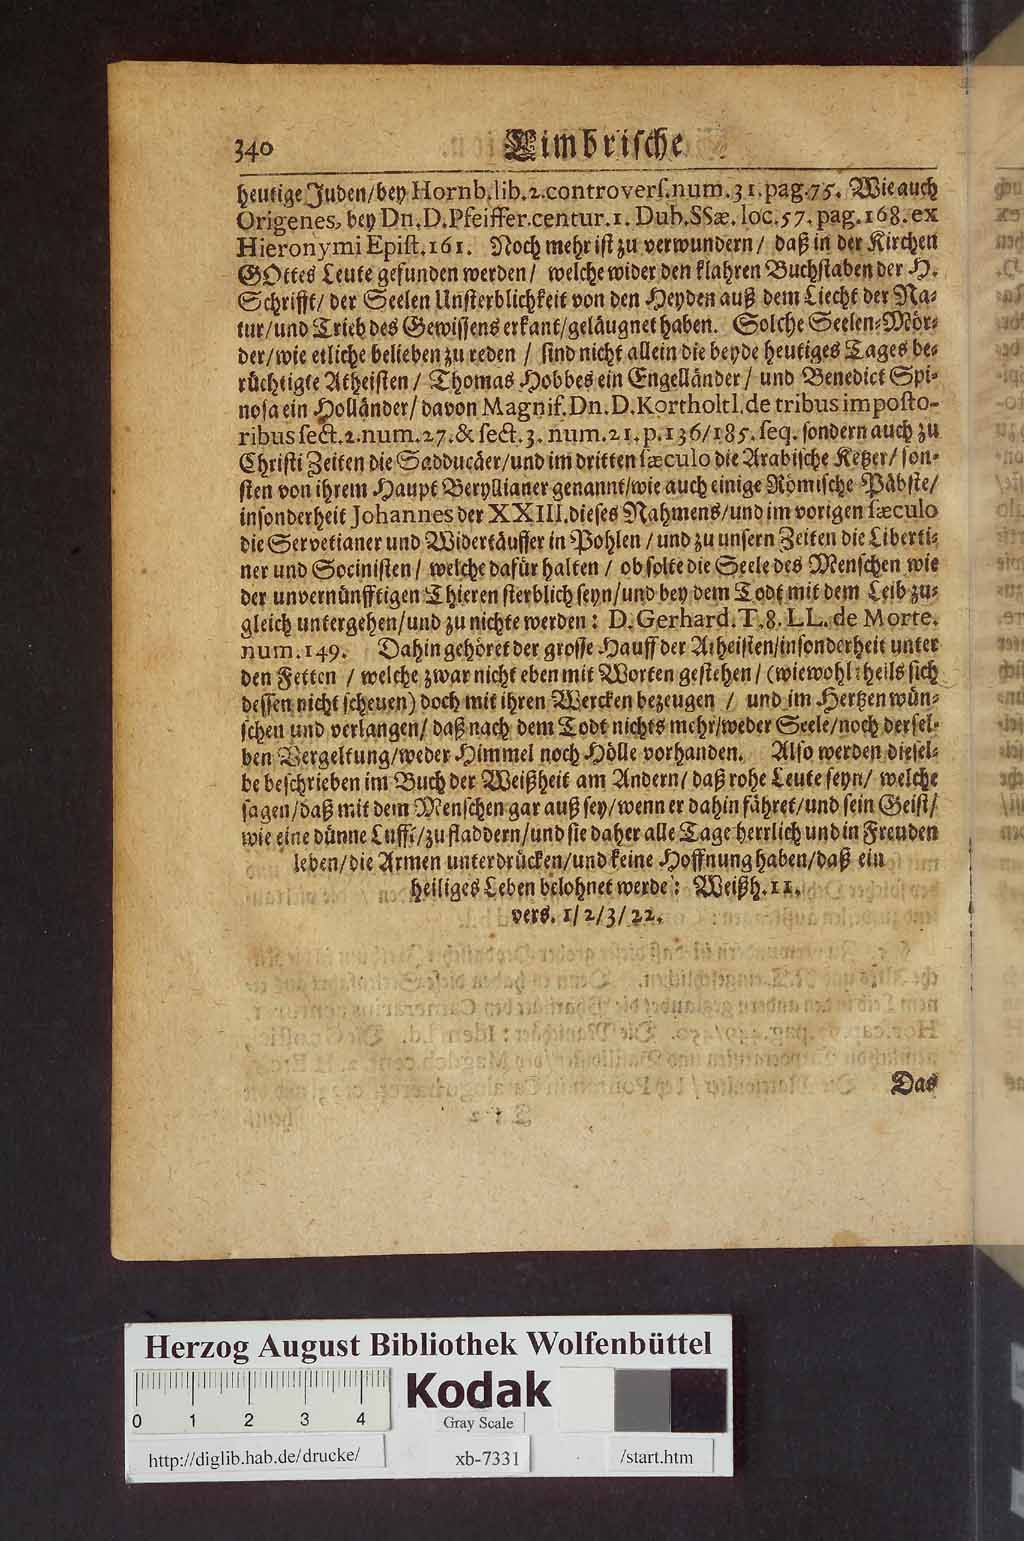 340 Limbrische
heutige Juden/bey Hornb.lib.2.controvers.num.31.pag.75. Wie auch
Origenes, bey Dn.D.Pfeiffer.centur.1. Dub.SSæ. loc.57. pag.168.ex
Hieronymi Epist.161. Noch mehr ist zu verwundern/ daß in der Kirchen
GOttes Leute gefunden werden/ welche wider den klahren Buchstaben der H.
Schrifft/ der Seelen Unsterblichkeit von den Heyden auß dem Liecht der Na-
tur/und Trieb des Gewissens erkant/geläugnet haben. Solche Seelen-Mör-
der/wie etliche belieben zu reden / sind nicht allein die beyde heutiges Tages be-
rüchtigte Atheisten / Thomas Hobbes ein Engelländer / und Benedict Spi-
nosa ein Holländer/ davon Magnif.Dn.D.Kortholt l.de tribus imposto-
ribus sect.2.num.27.& sect.3. num.21.p.136/185.seq. sondern auch zu
Christi Zeiten die Sadducäer/und im dritten sæculo die Arabische Ketzer/ son-
sten von ihrem Haupt Beryllianer genannt/wie auch einige Römische Päbste/
insonderheit Johannes der XXIII.dieses Nahmens/und im vorigen sæculo
die Servetianer und Widertäuffer in Pohlen / und zu unsern Zeiten die Liberti-
ner und Socinisten / welche dafür halten / ob solte die Seele des Menschen wie
der unvernünfftigen Thieren sterblich seyn/und bey dem Todt mit dem Leib zu-
gleich untergehen/und zu nichte werden: D.Gerhard.T.8.LL.de Morte.
num.149. Dahin gehöret der grosse Hauff der Atheisten/insonderheit unter
den Fetten / welche zwar nicht eben mit Worten gestehen/ (wiewohl theils sich
dessen nicht scheuen) doch mit ihren Wercken bezeugen / und im Hertzen wün-
schen und verlangen/ daß nach dem Todt nichts mehr/weder Seele/noch dersel-
ben Vergeltung/weder Himmel noch Hölle vorhanden. Also werden diesel-
be beschrieben im Buch der Weißheit am Andern/ daß rohe Leute seyn/ welche
sagen/daß mit dem Menschen gar auß sey/wenn er dahin fähret/und sein Geist/
wie eine dünne Lufft/zufladdern/und sie daher alle Tage herrlich und in Freuden
leben/die Armen unterdrücken/und keine Hoffnung haben/daß ein
heiliges Leben belohnet werde: Weißh.II.
vers. 1/2/3/22.
Das
Herzog August Bibliothek Wolfenbüttel
Kodak
0 1 2 3 4
Gray Scale
http://diglib.hab.de/drucke/ xb-7331 /start.htm